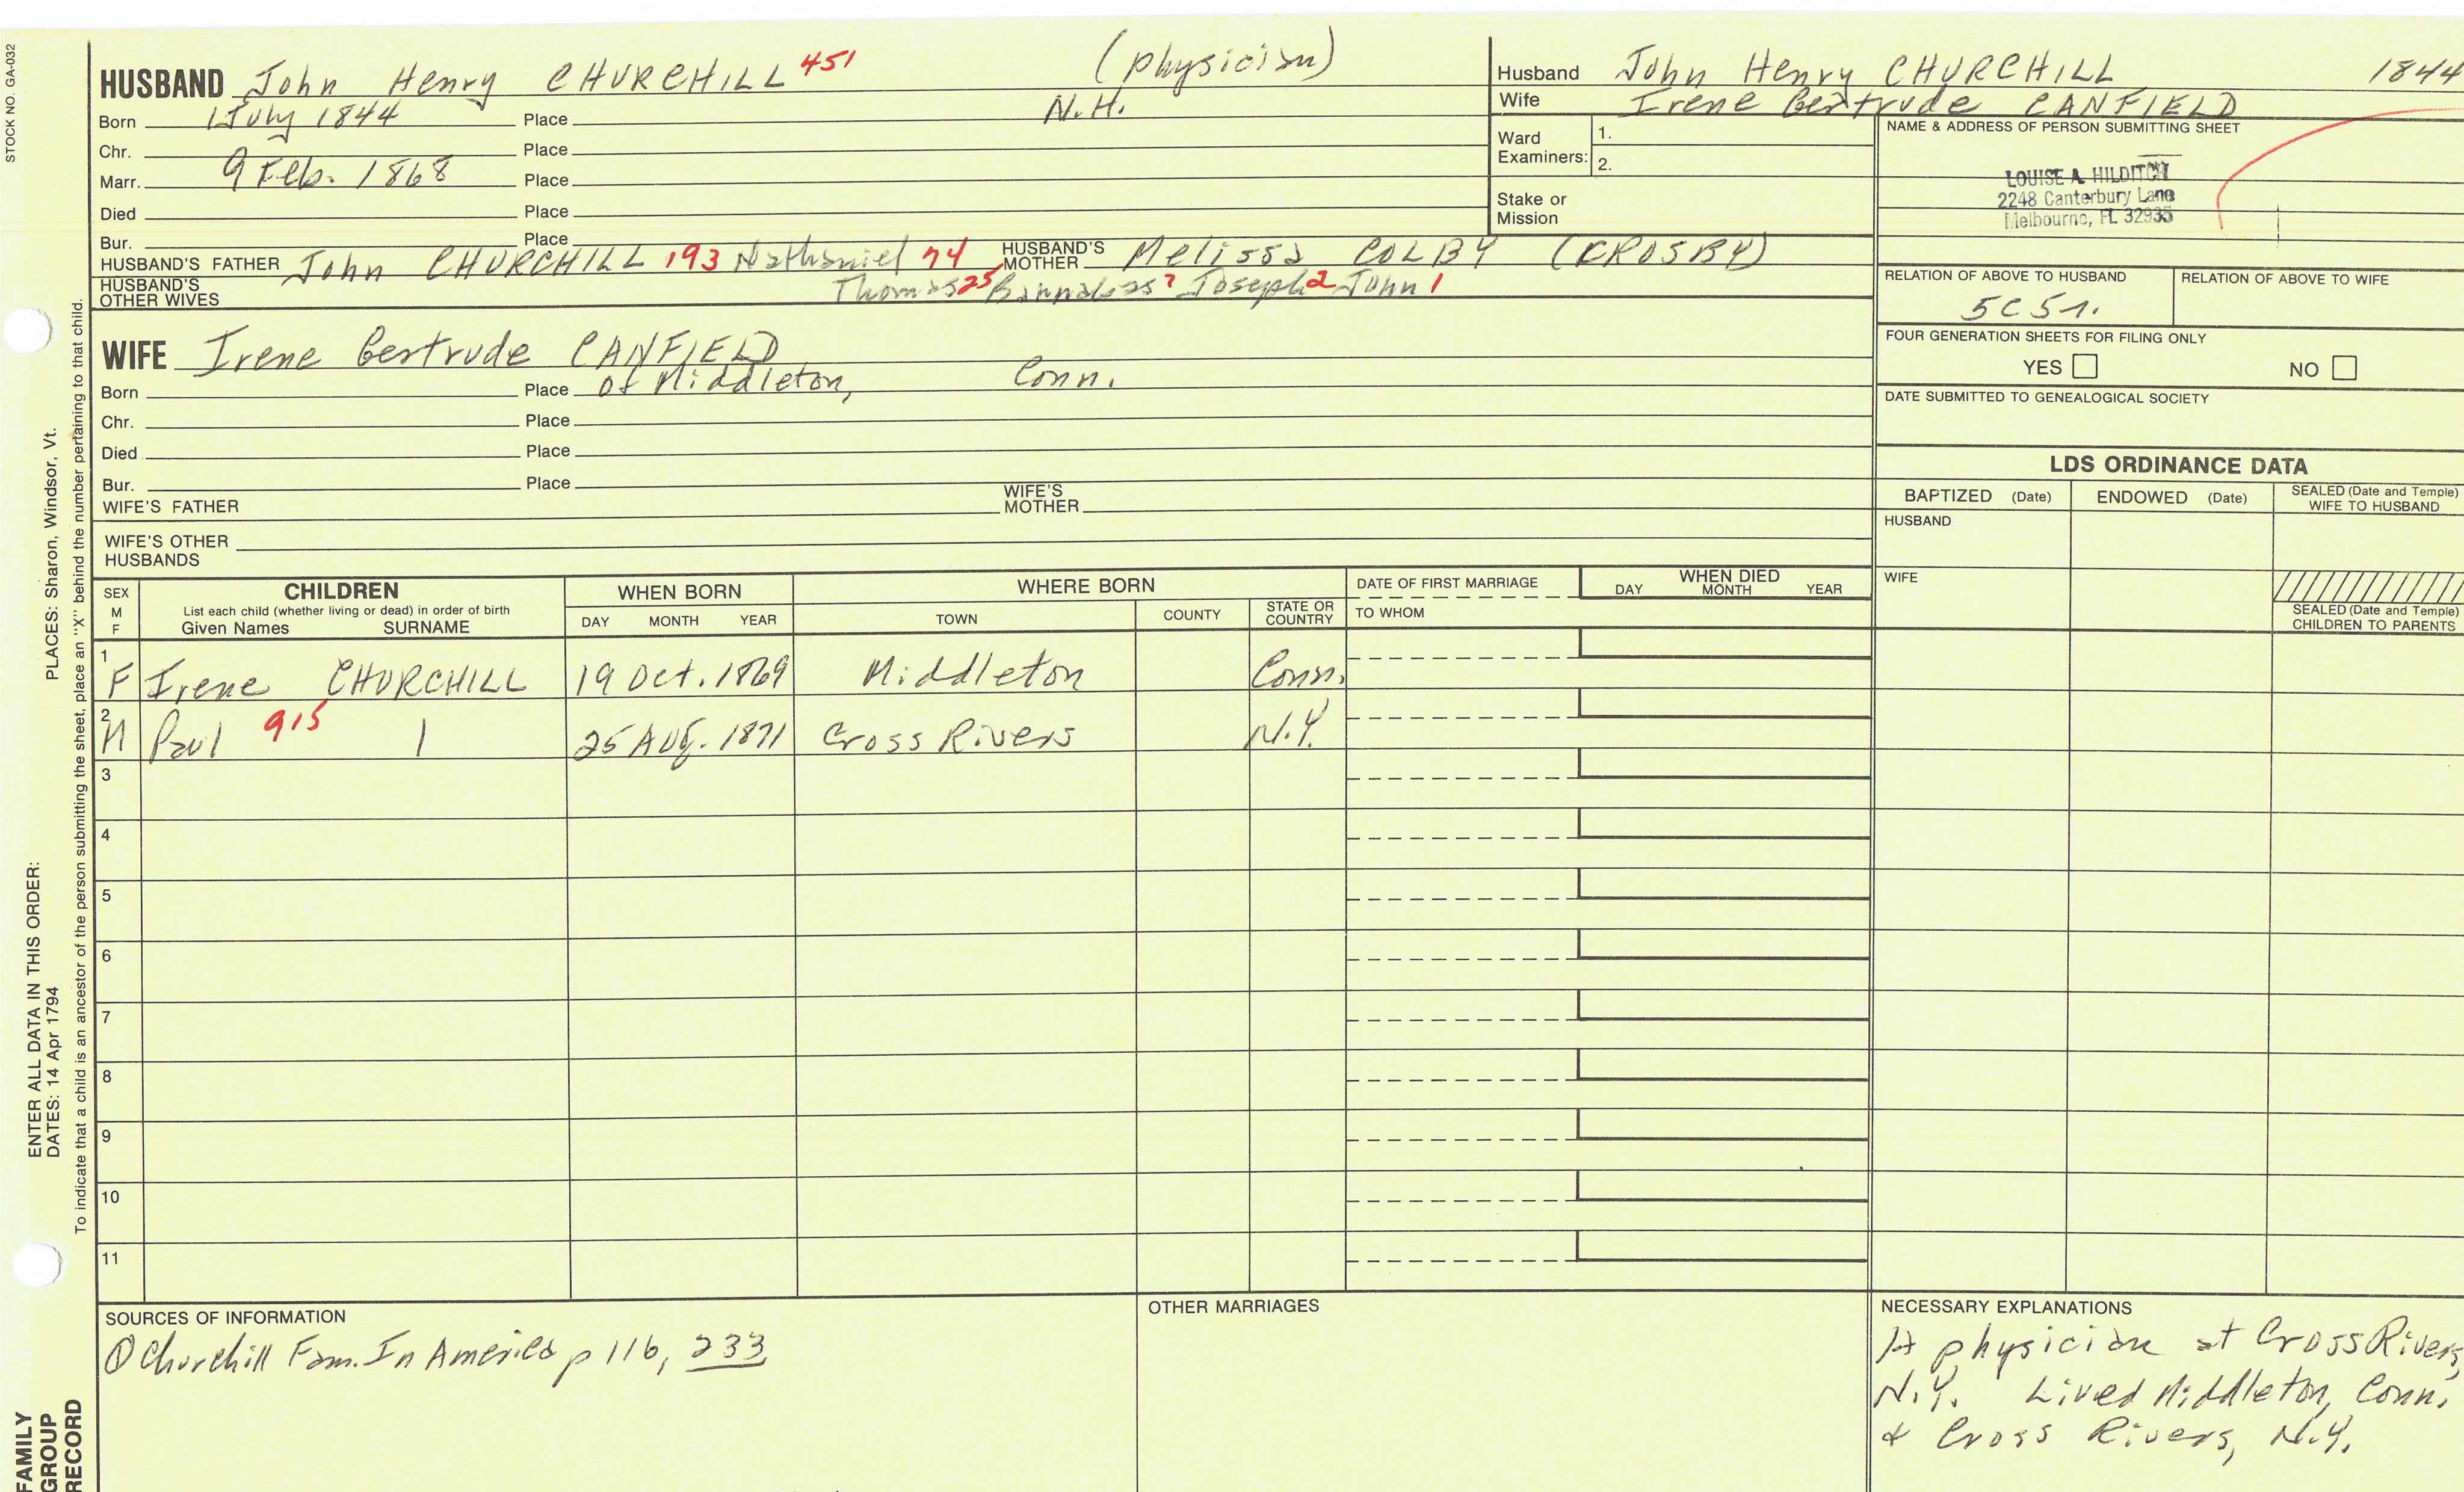 STOCK NO. GA-032
HUSBAND John Henry CHURCHILL 451 (physician)
Born 1 July 1844 Place N.H.
Chr. Place
Marr. 9 Feb. 1868 Place
Died Place
Bur. Place
HUSBAND'S FATHER John CHURCHILL 193 Nathaniel 74 HUSBAND'S MOTHER Melissa COLBY (CROSBY)
HUSBAND'S OTHER WIVES Thomas 25 Barnabas 7 Joseph 2 John 1
WIFE Irene Gertrude CANFIELD
Born Place of Middleton, Conn.
Chr. Place
Died Place
Bur. Place
WIFE'S FATHER WIFE'S MOTHER
WIFE'S OTHER HUSBANDS
Husband John Henry CHURCHILL 1844
Wife Irene Gertrude CANFIELD
Ward Examiners: 1.
2.
Stake or Mission
NAME & ADDRESS OF PERSON SUBMITTING SHEET
LOUISE A. HILDITCH
2248 Canterbury Lane
Melbourne, FL 32935
RELATION OF ABOVE TO HUSBAND RELATION OF ABOVE TO WIFE
FOUR GENERATION SHEETS FOR FILING ONLY
YES NO
DATE SUBMITTED TO GENEALOGICAL SOCIETY
LDS ORDINANCE DATA
BAPTIZED (Date) ENDOWED (Date) SEALED (Date and Temple) WIFE TO HUSBAND
HUSBAND
WIFE
SEALED (Date and Temple) CHILDREN TO PARENTS
SEX M F CHILDREN List each child (whether living or dead) in order of birth Given Names SURNAME WHEN BORN DAY MONTH YEAR WHERE BORN TOWN COUNTY STATE OR COUNTRY DATE OF FIRST MARRIAGE TO WHOM WHEN DIED DAY MONTH YEAR
1 F Irene CHURCHILL 19 Oct. 1869 Middleton Conn.
2 M Paul 915 25 Aug. 1871 Cross Rivers N.Y.
3
4
5
6
7
8
9
10
11
SOURCES OF INFORMATION
① Churchill Fam. In America p 116, 233
OTHER MARRIAGES
NECESSARY EXPLANATIONS
A physician at Cross Rivers,
N.Y. Lived Middleton, Conn.
& Cross Rivers, N.Y.
ENTER ALL DATA IN THIS ORDER:
DATES: 14 Apr 1794 PLACES: Sharon, Windsor, Vt.
To indicate that a child is an ancestor of the person submitting the sheet, place an "X" behind the number pertaining to that child.
FAMILY
GROUP
RECORD